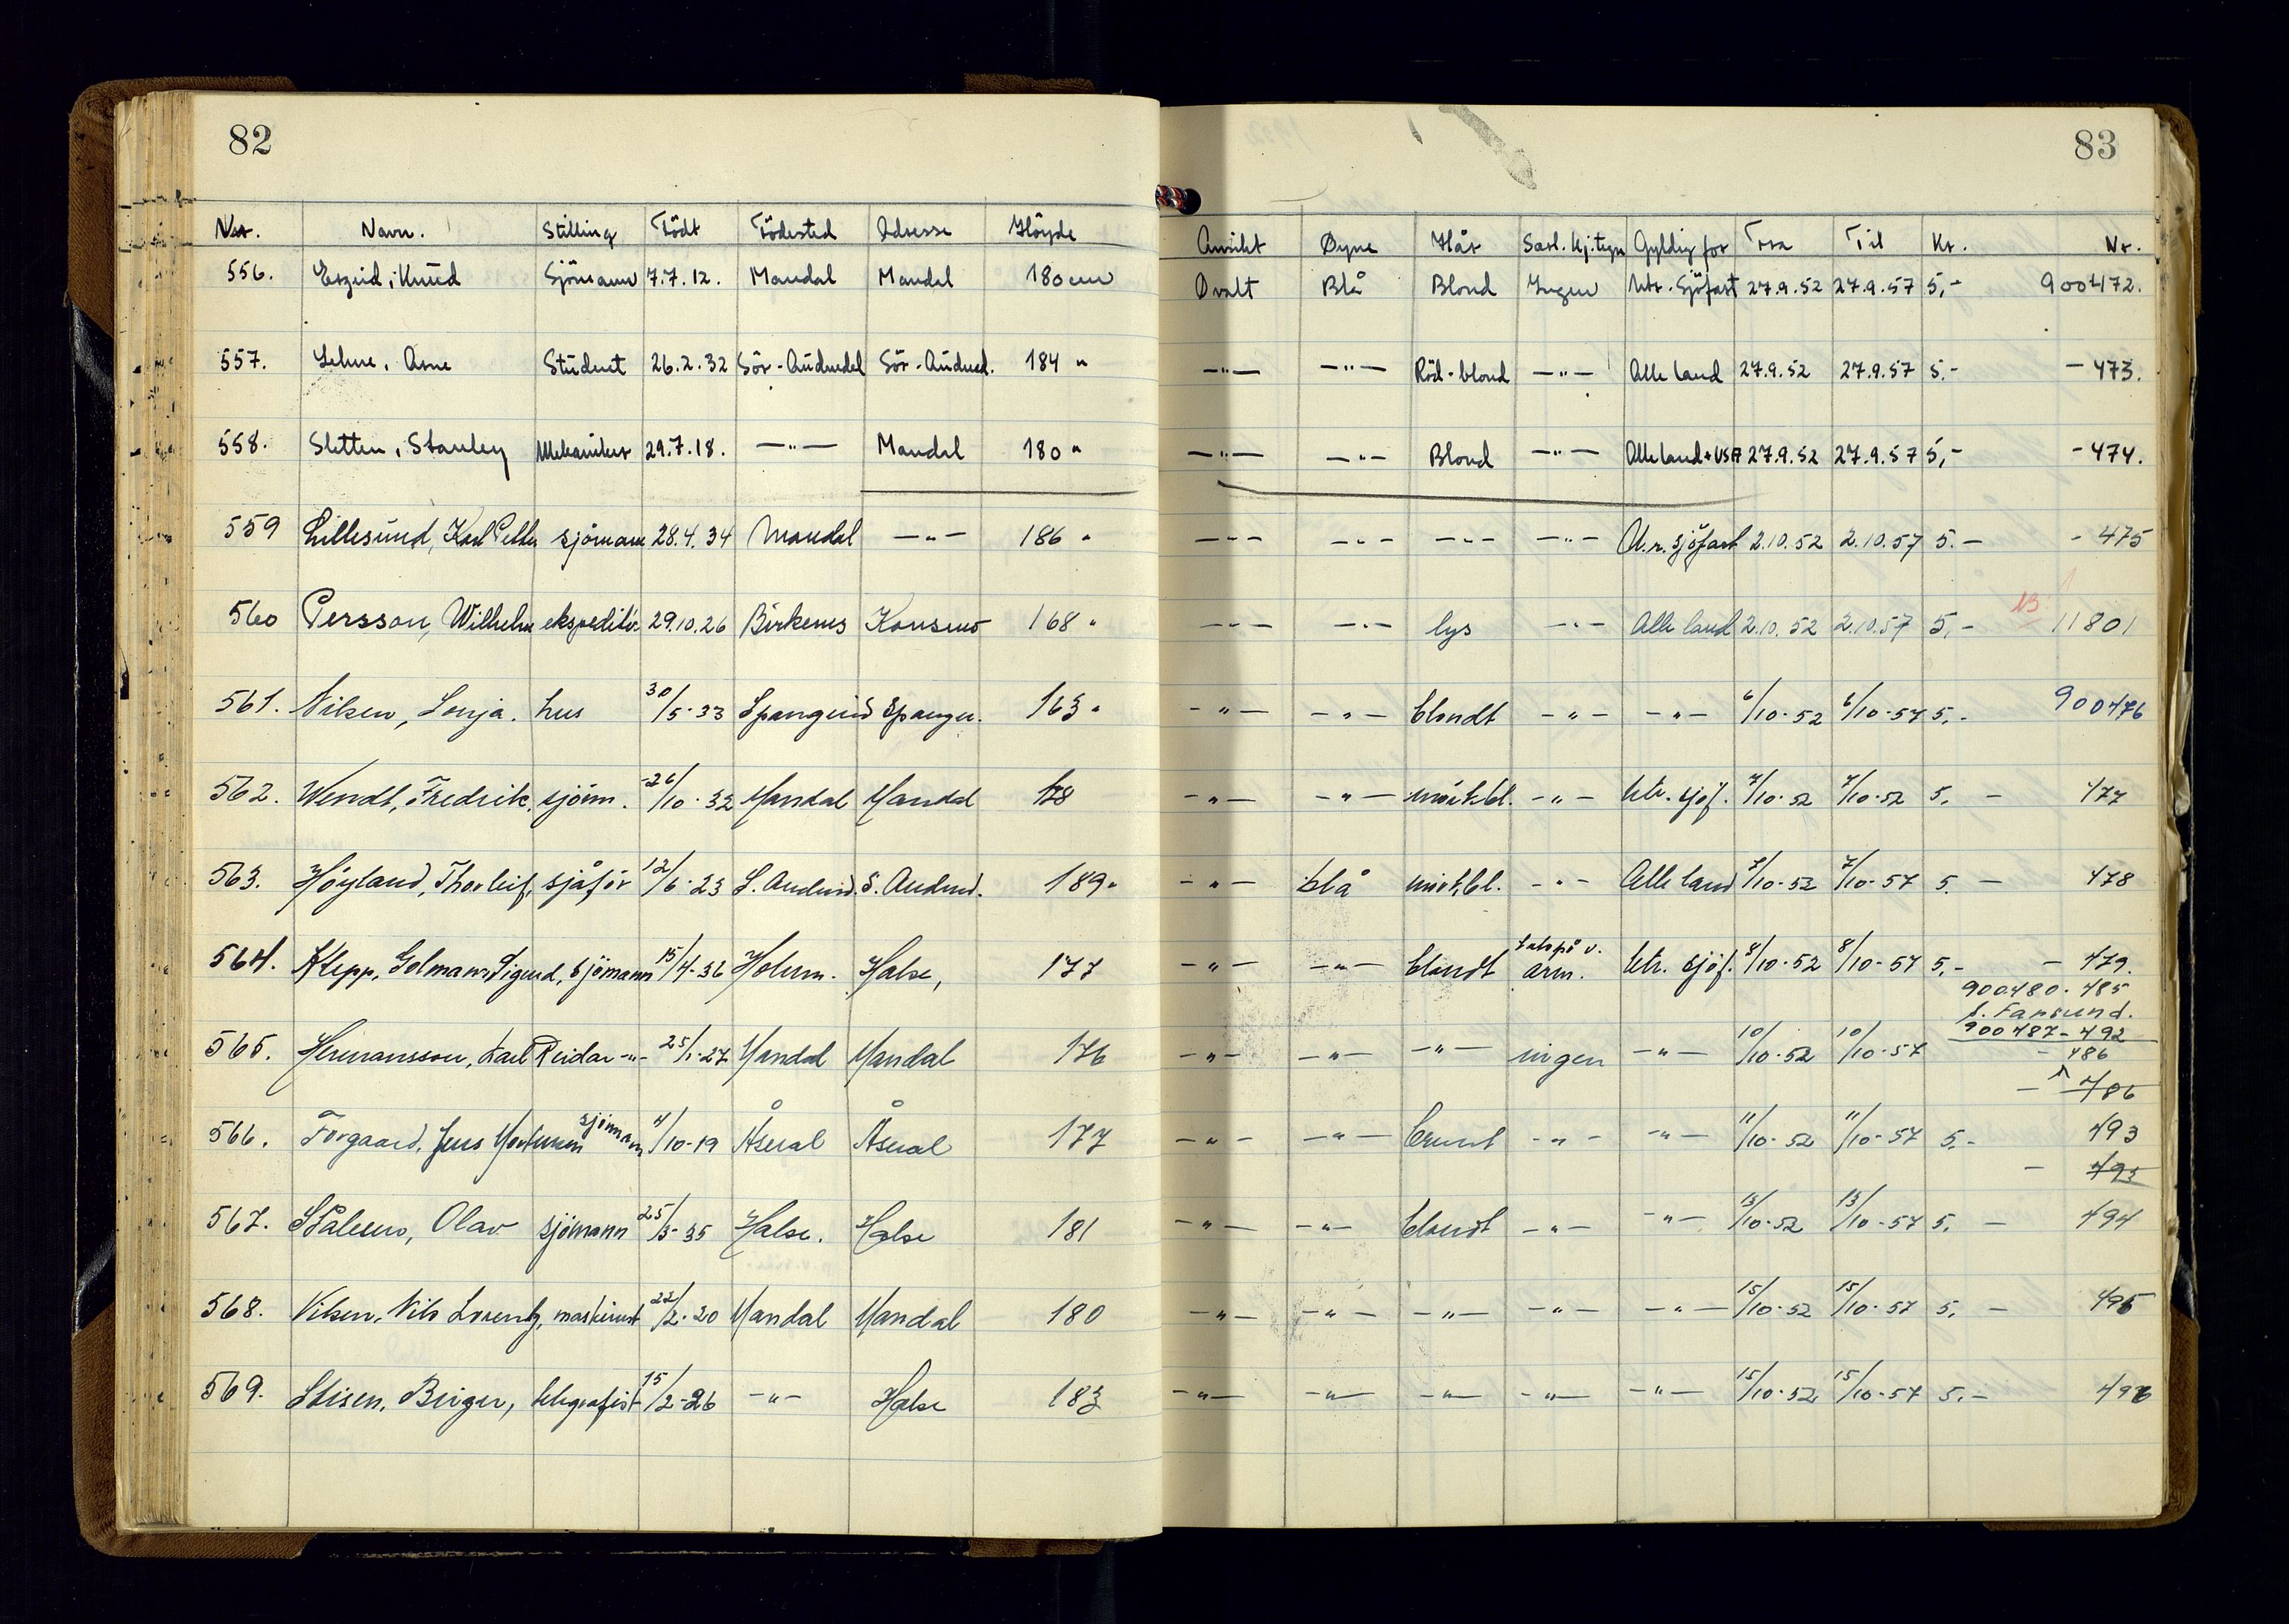 82
Nr. Navn. Stilling Födt Födested Adresse Höyde
556. Knud Sjömann 7.7.12. Mandal Mandal 180 cm
557. Lehne, Arne Student 26.2.32 Sör-Audnedal Sör-Audned. 184 "
558. Sletten, Stanley Mekaniker 29.7.18. —"— Mandal 180 "
559 Lillesund, Karl Petter sjömann 28.4.34 Mandal —"— 186 "
560 Persson, Wilhelm ekspeditör 29.10.26 Birkenes Konsmo 168 "
561. Nilsen, Sonja. hus 30/5-33 Spangereid Spanger. 163 "
562. Wendt, Fredrik, sjöm. 26/10-32 Mandal Mandal 178
563. Höyland, Thorleif, sjåför 12/6-23 S. Audned. S. Audned. 189 "
564. Klepp, Golman Sigurd, sjömann 15/4-36 Holum. Halse, 177
565. Hermansson, Karl Reidar -"- 25/1-27 Mandal Mandal 176
566. Forgaard, Jens Mortensen sjömann 4/10-19 Åseral Åseral 177
567. Ståleson, Olav sjömann 25/3-35 Halse. Halse 181
568. Nilsen, Nils Lorentz, maskinist 22/2-20 Mandal Mandal 180
569. Stisen, Birger, telegrafist 15/2-26 -"- Halse 183
83
Ansikt Øyne Hår Særl. kj.tegn Gyldig for Fra Til Kr. Nr.
Ovalt Blå Blond Ingen Utr. Sjöfart 27.9.52 27.9.57 5,- 900472.
—"— —"— Röd-blond —"— Alle land 27.9.52 27.9.57 5.- - 473.
—"— —"— Blond —"— Alle land + USA 27.9.52 27.9.57 5,- - 474.
—"— —"— —"— —"— U.r. sjöfart 2.10.52 2.10.57 5.- - 475
—"— —"— lys —"— Alle land 2.10.52 2.10.57 5,- NB 11801
-"- -"- blondt -"- -"- 6/10-52 6/10-57 5.- 900476
-"- -"- mörkbl. -"- Utr. sjöf. 7/10-52 7/10-52 5. - 477
-"- blå mörkbl. -"- Alle land 7/10-52 7/10-57 5. - 478
-"- -"- blondt tato på v. arm. Utr. sjöf. 8/10-52 8/10-57 5.- - 479.
900480-485
t. Farsund.
900487-492
-"- -"- -"- ingen -"- 10/10-52 10/10-57 - 486
- 486
-"- -"- brunt -"- -"- 11/10-52 11/10-57 5.- 493
- 495
-"- -"- blondt -"- -"- 13/10-52 13/10-57 5. - 494
-"- -"- -"- -"- -"- 15/10-52 15/10-57 5. - 495
-"- -"- -"- -"- -"- 15/10-52 15/10-57 5.- 496